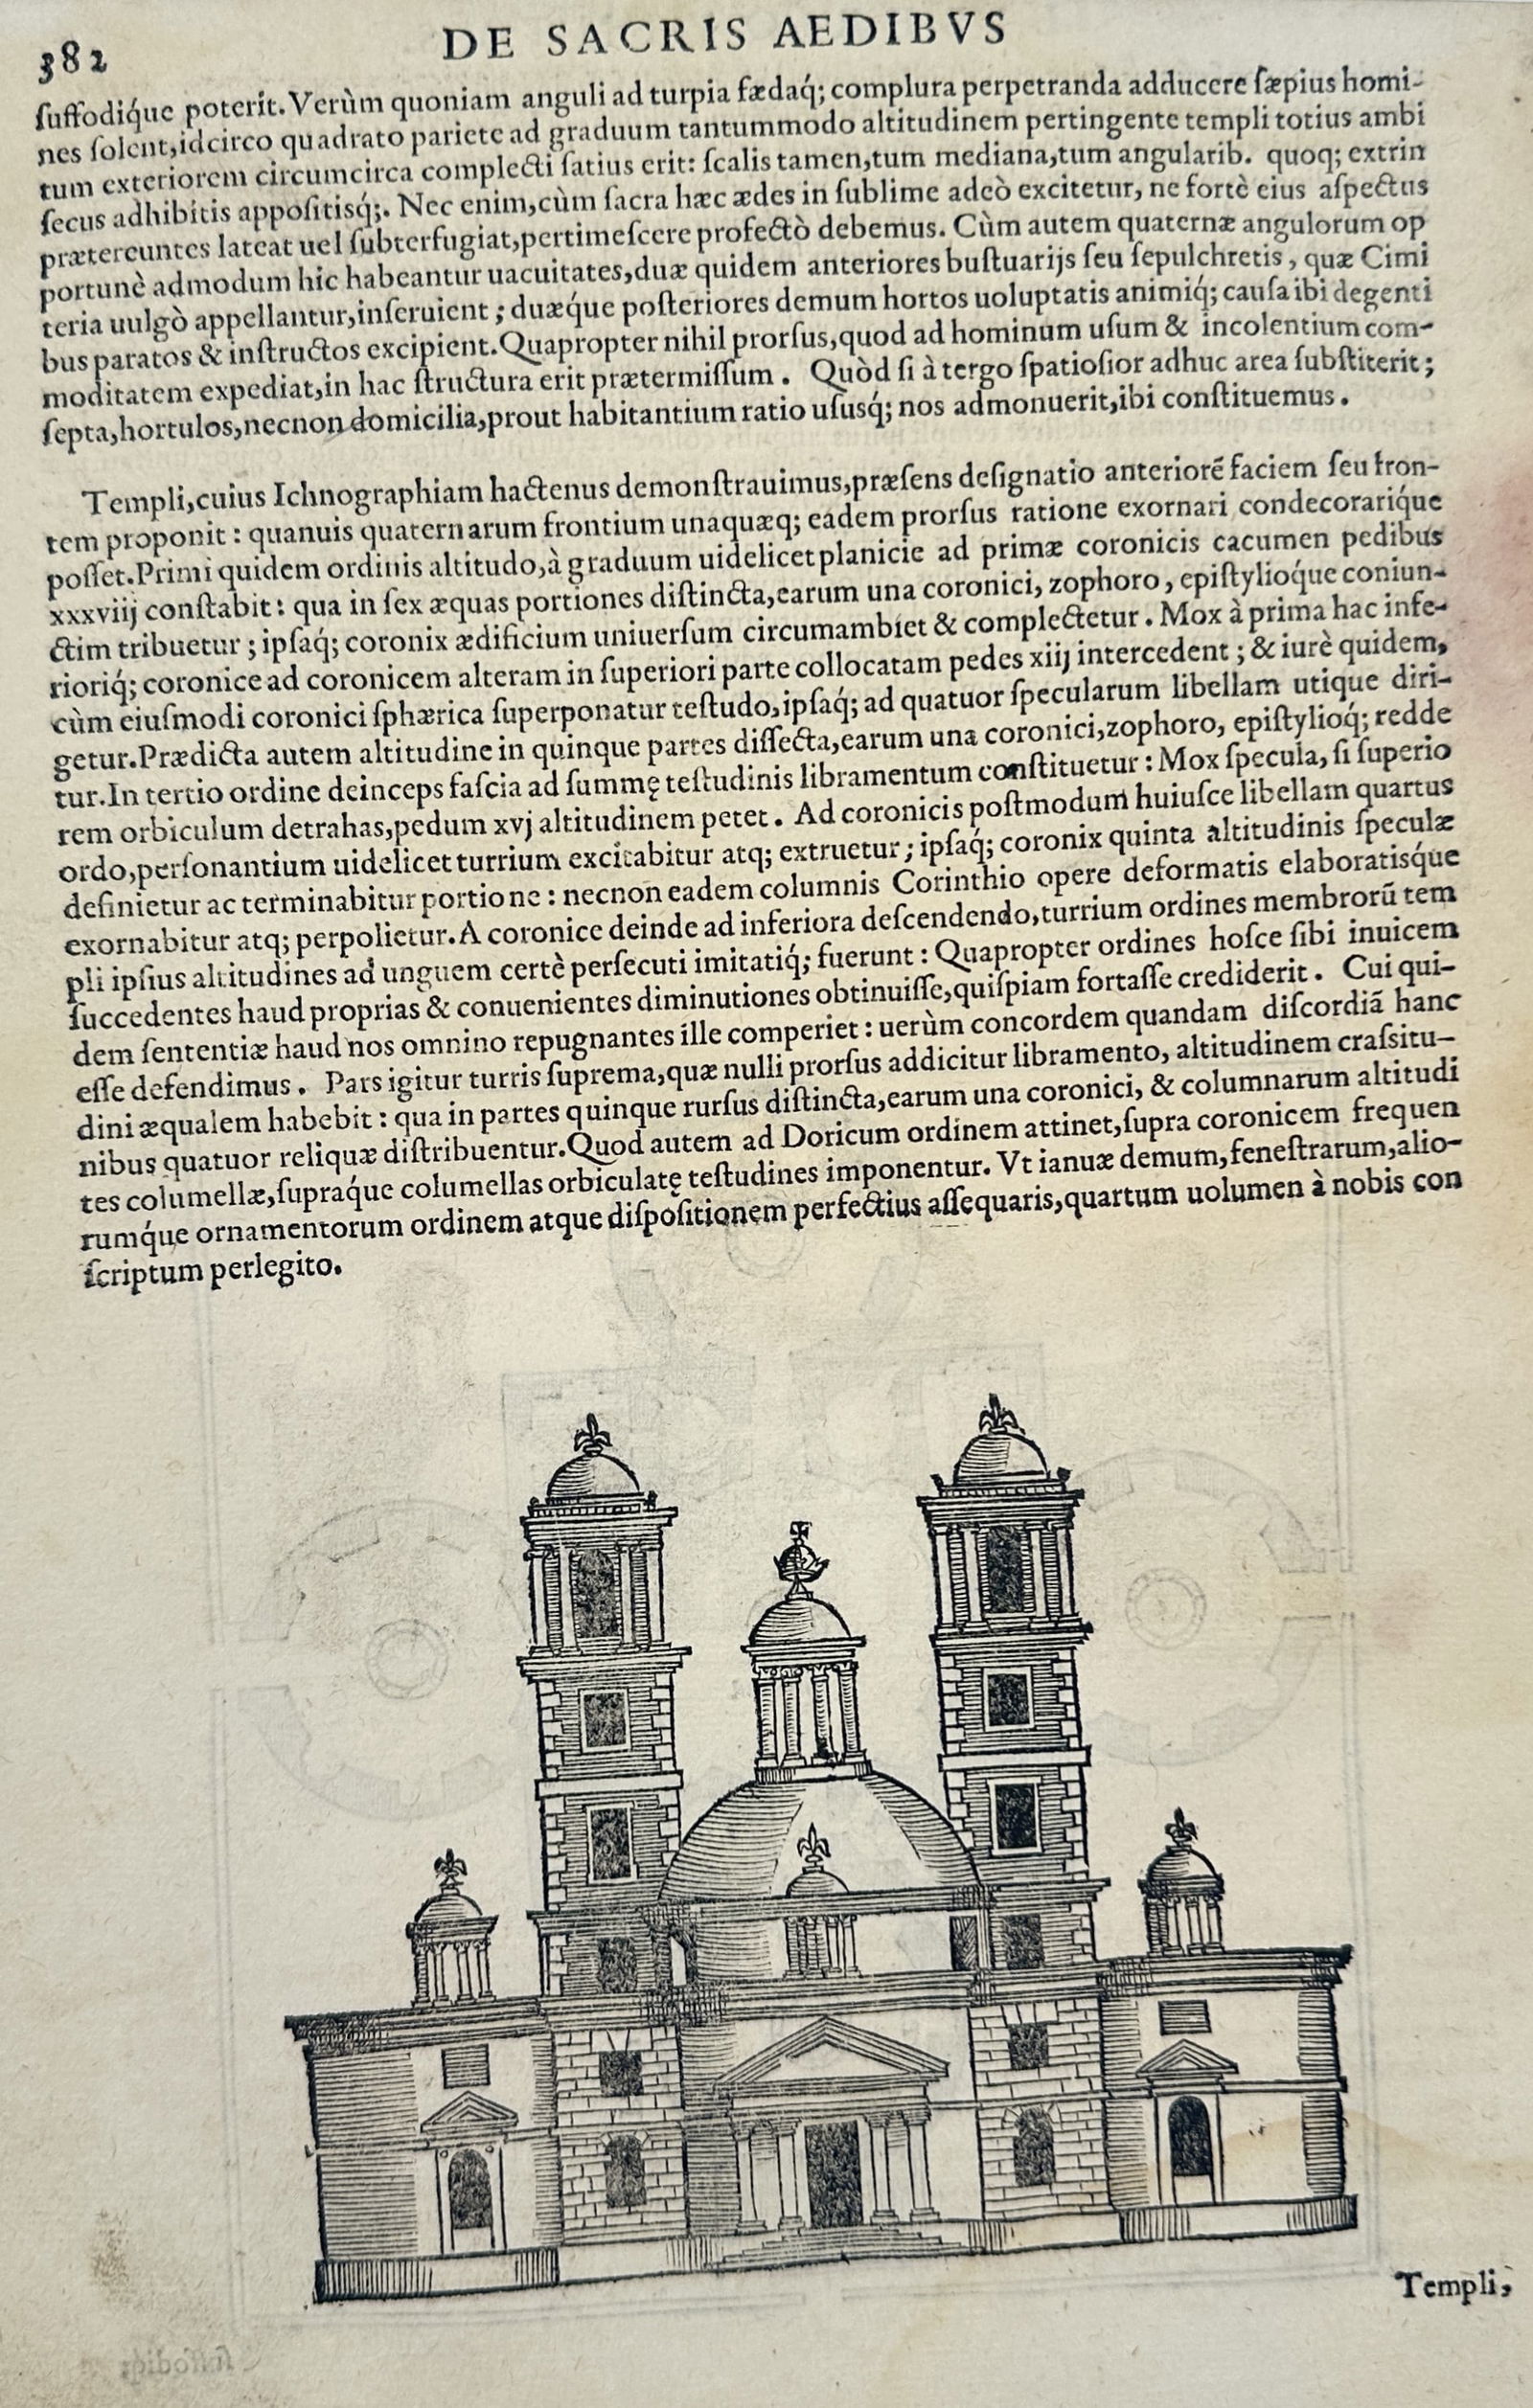 382
DE SACRIS AEDIBVS
ſuffodiq́ue poterit. Verùm quoniam anguli ad turpia fædaq́; complura perpetranda adducere ſæpius homi-
nes ſolent, idcirco quadrato pariete ad graduum tantummodo altitudinem pertingente templi totius ambi
tum exteriorem circumcirca complecti ſatius erit: ſcalis tamen, tum mediana, tum angularib. quoq; extrin
ſecus adhibitis appoſitisq́;. Nec enim, cùm ſacra hæc ædes in ſublime adeò excitetur, ne fortè eius aſpectus
prætereuntes lateat uel ſubterfugiat, pertimeſcere profectò debemus. Cùm autem quaternæ angulorum op
portunè admodum hic habeantur uacuitates, duæ quidem anteriores buſtuarijs ſeu ſepulchretis, quæ Cimi
teria uulgò appellantur, inſeruient; duæq́ue poſteriores demum hortos uoluptatis animiq́; cauſa ibi degenti
bus paratos & inſtructos excipient. Quapropter nihil prorſus, quod ad hominum uſum & incolentium com-
moditatem expediat, in hac ſtructura erit prætermiſſum. Quòd ſi à tergo ſpatioſior adhuc area ſubſtiterit;
ſepta, hortulos, necnon domicilia, prout habitantium ratio uſusq́; nos admonuerit, ibi conſtituemus.
Templi, cuius Ichnographiam hactenus demonſtrauimus, præſens deſignatio anteriorẽ faciem ſeu fron-
tem proponit: quanuis quaternarum frontium unaquæq; eadem prorſus ratione exornari condecorariq́ue
poſſet. Primi quidem ordinis altitudo, à graduum uidelicet planicie ad primæ coronicis cacumen pedibus
xxxviij conſtabit: qua in ſex æquas portiones diſtincta, earum una coronici, zophoro, epiſtylioq́ue coniun-
ctim tribuetur; ipſaq́; coronix ædificium uniuerſum circumambiet & complectetur. Mox à prima hac infe-
rioriq́; coronice ad coronicem alteram in ſuperiori parte collocatam pedes xiij intercedent; & iurè quidem,
cùm eiuſmodi coronici ſphærica ſuperponatur teſtudo, ipſaq́; ad quatuor ſpecularum libellam utique diri-
getur. Prædicta autem altitudine in quinque partes diſſecta, earum una coronici, zophoro, epiſtylioq́; redde
tur. In tertio ordine deinceps faſcia ad ſummę teſtudinis libramentum conſtituetur: Mox ſpecula, ſi ſuperio
rem orbiculum detrahas, pedum xvj altitudinem petet. Ad coronicis poſtmodum huiuſce libellam quartus
ordo, perſonantium uidelicet turrium excitabitur atq; extruetur; ipſaq́; coronix quinta altitudinis ſpeculæ
definietur ac terminabitur portione: necnon eadem columnis Corinthio opere deformatis elaboratisq́ue
exornabitur atq; perpolietur. A coronice deinde ad inferiora deſcendendo, turrium ordines membrorũ tem
pli ipſius altitudines ad unguem certè perſecuti imitatiq́; fuerunt: Quapropter ordines hoſce ſibi inuicem
ſuccedentes haud proprias & conuenientes diminutiones obtinuiſſe, quiſpiam fortaſſe crediderit. Cui qui-
dem ſententiæ haud nos omnino repugnantes ille comperiet: uerùm concordem quandam diſcordiã hanc
eſſe defendimus. Pars igitur turris ſuprema, quæ nulli prorſus addicitur libramento, altitudinem craſsitu-
dini æqualem habebit: qua in partes quinque rurſus diſtincta, earum una coronici, & columnarum altitudi
nibus quatuor reliquæ diſtribuentur. Quod autem ad Doricum ordinem attinet, ſupra coronicem frequen
tes columellæ, ſupraq́ue columellas orbiculatę teſtudines imponentur. Vt ianuæ demum, feneſtrarum, alio-
rumq́ue ornamentorum ordinem atque diſpoſitionem perfectius aſſequaris, quartum uolumen à nobis con
ſcriptum perlegito.
Templi,